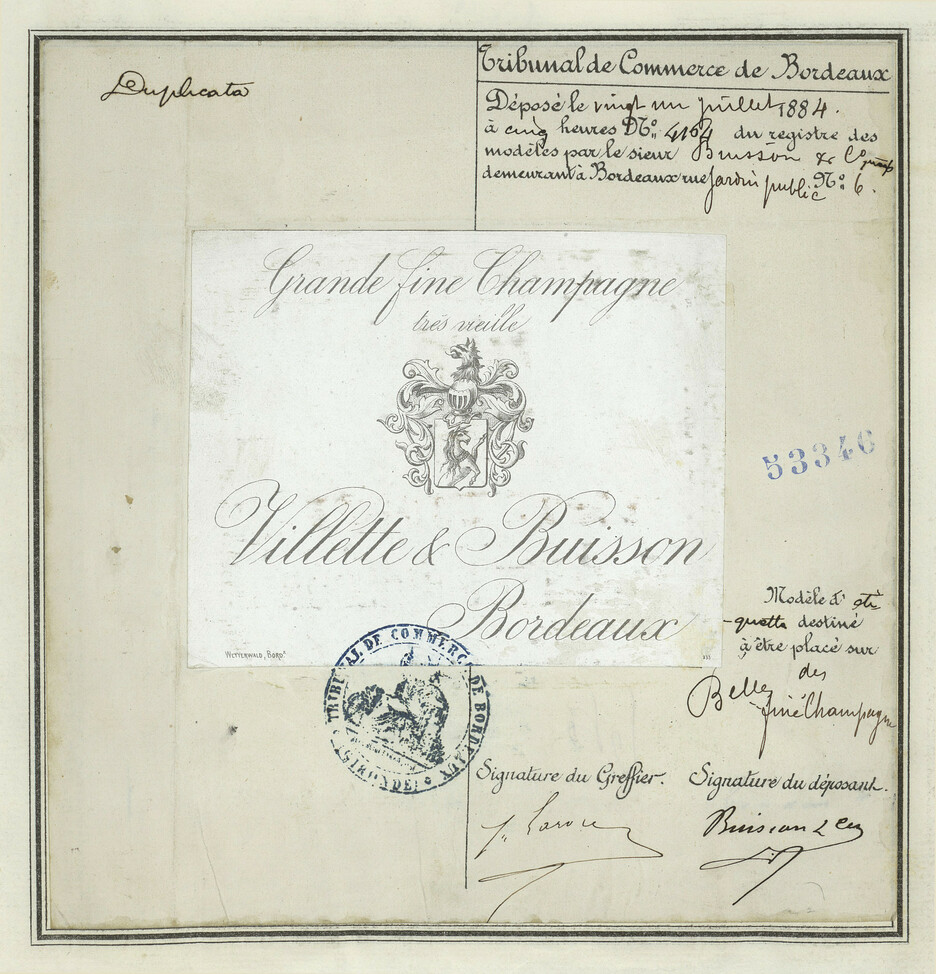 Duplicata
Tribunal de Commerce de Bordeaux
Déposé le vingt un juillet 1884.
à cinq heures No. 4164 du registre des
modèles par le sieur Buisson & Co
demeurant à Bordeaux rue jardin public No. 6.
Grande fine Champagne
très vieille
Villette & Buisson
Bordeaux
WETTERWALD, BORDx
53346
Modèle d'éti
-quette destiné
à être placé sur
des
Belles
fine Champagne
TRIBUNAL DE COMMERCE DE BORDEAUX
(GIRONDE)
Signature du Greffier.
Signature du déposant.
Buisson & Co